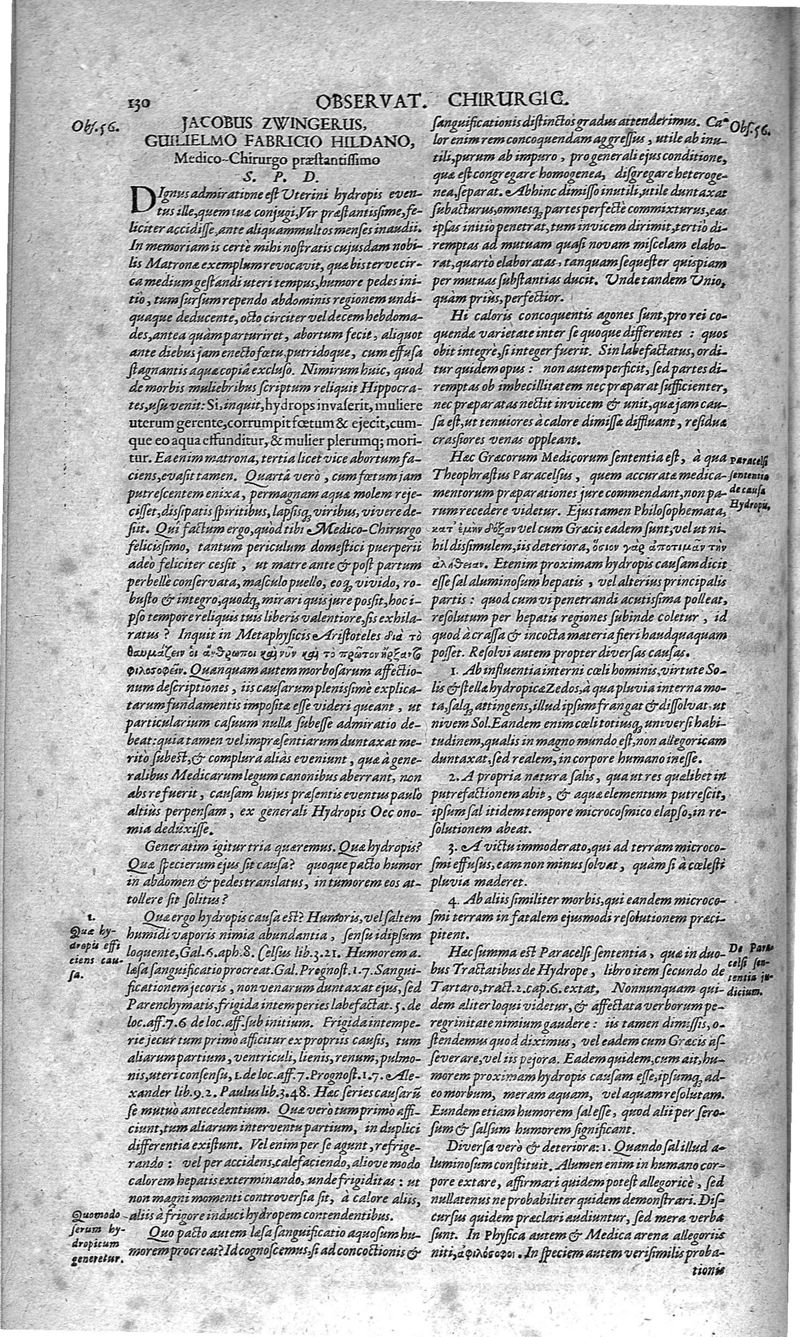 130
OBSERVAT. CHIRURGIC.
Obs. 56.
JACOBUS ZWINGERUS,
GUILIELMO FABRICIO HILDANO,
Medico-Chirurgo præstantissimo
S. P. D.
DIgnus admiratione est Uterini hydropis even-
tus ille, quem tuæ conjugi, Vir præstantissime, fe-
liciter accidisse, ante aliquammultos menses inaudii.
In memoriam is certè mihi nostratis cujusdam nobi-
lis Matronæ exemplum revocavit, quæ bis terve cir-
ca medium gestandi uteri tempus, humore pedes ini-
tio, tum sursum rependo abdominis regionem undi-
quaque deducente, octo circiter vel decem hebdoma-
des, antea quàm parturiret, abortum fecit, aliquot
ante diebus jam enecto fœtu, putridoque, cum effusa
stagnantis aquæ copiâ excluso. Nimirum huic, quod
de morbis muliebribus scriptum reliquit Hippocra-
tes, usu venit: Si, inquit, hydrops invaserit, muliere
uterum gerente, corrumpit fœtum & ejecit, cum-
que eo aqua effunditur, & mulier plerumq; mori-
tur. Ea enim matrona, tertia licet vice abortum fa-
ciens, evasit tamen. Quartâ verò, cum fœtum jam
putrescentem enixa, permagnam aquæ molem reje-
cisset, dissipatis spiritibus, lapsisq; viribus, vivere de-
siit. Qui factum ergo, quòd tibi Medico-Chirurgo
felicissimo, tantum periculum domestici puerperii
adeò feliciter cessit, ut matre ante & post partum
perbellè conservata, masculo puello, eoq; vivido, ro-
busto & integro, quodq; mirari quis jure possit, hoc i-
pso tempore reliquis tuis liberis valentiore, sis exhila-
ratus? Inquit in Metaphysicis Aristoteles διὰ τὸ
θαυμάζειν οἱ ἄνθρωποι καὶ νῦν καὶ τὸ πρῶτον ἤρξαντο
φιλοσοφεῖν. Quanquam autem morbosarum affectio-
num descriptiones, iis causarum plenissimè explica-
tarum fundamentis impositæ esse videri queant, ut
particularium casuum nulla subesse admiratio de-
beat: quia tamen vel impræsentiarum duntaxat me-
ritò subest, & complura aliàs eveniunt, quæ à gene-
ralibus Medicarum legum canonibus aberrant, non
abs re fuerit, causam hujus præsentis eventus paulo
altiùs perpensam, ex generali Hydropis Oecono-
mia deduxisse.
Generatim igitur tria quæremus. Quæ hydropis?
Quæ specierum ejus sit causa? quoque pacto humor
in abdomen & pedes translatus, in tumorem eos at-
tollere sit solitus?
1.
Quæ hy-
dropis effi
ciens cau-
sa.
Quæ ergo hydropis causa est? Humoris, vel saltem
humidi vaporis nimia abundantia, sensu idipsum
loquente, Gal. 6. aph. 8. Celsus lib. 3. 21. Humorem a.
læsa sanguificatio procreat. Gal. Prognost. 1. 7. Sangui-
ficationem jecoris, non venarum duntaxat ejus, sed
Parenchymatis, frigida intemperies labefactat. 5. de
loc. aff. 7. 6 de loc. aff. sub initium. Frigida intempe-
rie jecur tum primo afficitur ex propriis causis, tum
aliarum partium, ventriculi, lienis, renum, pulmo-
nis, uteri consensu, 1. de loc. aff. 7. Prognost. 1. 7. Ale-
xander lib. 9. 2. Paulus lib. 3. 48. Hæc series causarũ
se mutuò antecedentium. Quæ verò tum primo affi-
ciunt, tum aliarum interventu partium, in duplici
differentia existunt. Vel enim per se agunt, refrige-
rando: vel per accidens, calefaciendo, aliove modo
calorem hepatis exterminando, unde frigiditas: ut
non magni momenti controversia sit, à calore aliis,
aliis à frigore induci hydropem contendentibus.
Quomodo
serum hy-
dropicum
generetur.
Quo pacto autem læsa sanguificatio aquosum hu-
morem procreat? Id cognoscemus, si ad concoctionis &
sanguificationis distinctos gradus attenderimus. Ca-
lor enim rem concoquendam aggressus, utile ab inu-
tili, purum ab impuro, pro generali ejus conditione,
quæ est congregare homogenea, disgregare heteroge-
nea, separat. Abhinc dimisso inutili, utile duntaxat
subacturus, omnesq; partes perfectè commixturus, eas
ipsas initiò penetrat, tum invicem dirimit, tertiò di-
remptas ad mutuam quasi novam miscelam elabo-
rat, quartò elaboratas, tanquam sequester quispiam
per mutuas substantias ducit. Unde tandem Unio,
quàm prius, perfectior.
Obs. 56.
Hi caloris concoquentis agones sunt, pro rei co-
quendæ varietate inter se quoque differentes: quos
obit integrè, si integer fuerit. Sin labefactatus, ordi-
tur quidem opus: non autem perficit, sed partes di-
remptas ob imbecillitatem nec præparat sufficienter,
nec præparatas nectit invicem & unit, quæ jam cau-
sa est, ut tenuiores à calore dimissæ diffluant, residuæ
crassiores venas oppleant.
Hæc Græcorum Medicorum sententia est, à qua
Theophrastus Paracelsus, quem accuratæ medica-
mentorum præparationes jure commendant, non pa-
rum recedere videtur. Ejus tamen Philosophemata,
κατ' ἐμὴν δόξαν vel cum Græcis eadem sunt, vel ut ni-
hil dissimulem, iis deteriora, ὅσιον γὰρ ἀποτιμᾶν τὴν
ἀλήθειαν. Etenim proximam hydropis causam dicit
esse sal aluminosum hepatis, vel alterius principalis
partis: quod cum vi penetrandi acutissima polleat,
resolutum per hepatis regiones subinde coletur, id
quod à crassa & incocta materia fieri haudquaquam
posset. Resolvi autem propter diversas causas.
Paracelsi
sententia
de causa
Hydropis.
1. Ab influentia interni cœli hominis, virtute So-
lis & stellæ hydropicæ Zedos, à qua pluvia interna mo-
ta, salq; attingens, illud ipsum frangat & dissolvat, ut
nivem Sol. Eandem enim cœli totiusq; universi habi-
tudinem, qualis in magno mundo est, non allegoricam
duntaxat, sed realem, in corpore humano inesse.
2. A propria natura salis, quæ ut res quælibet in
putrefactionem abit, & aquæ elementum putrescit,
ipsum sal itidem tempore microcosmico elapso, in re-
solutionem abeat.
3. A victu immoderato, qui ad terram microco-
smi effusus, eam non minus solvat, quàm si à cœlesti
pluvia maderet.
4. Ab aliis similiter morbis, qui eandem microco-
smi terram in fatalem ejusmodi resolutionem præci-
pitent.
Hæc summa est Paracelsi sententia, quæ in duo-
bus Tractatibus de Hydrope, libro item secundo de
Tartaro, tract. 2. cap. 6. extat. Nonnunquam qui-
dem aliter loqui videtur, & affectata verborum pe-
regrinitate nimium gaudere: iis tamen dimissis, o-
stendemus quod diximus, vel eadem cum Græcis as-
severare, vel iis pejora. Eadem quidem, cum ait, hu-
morem proximam hydropis causam esse, ipsumq; ad-
eo morbum, meram aquam, vel aquam resolutam.
Eundem etiam humorem sal esse, quod alii per sero-
sum & salsum humorem significant.
De Para-
celsi sen-
tentia ju-
dicium.
Diversa verò & deteriora: 1. Quando sal illud a-
luminosum constituit. Alumen enim in humano cor-
pore extare, affirmari quidem potest allegoricè, sed
nullatenus ne probabiliter quidem demonstrari. Dis-
cursus quidem præclari audiuntur, sed mera verba
sunt. In Physica autem & Medica arena allegoriis
niti, ἀφιλόσοφοι. In speciem autem verisimilis proba-
tionis